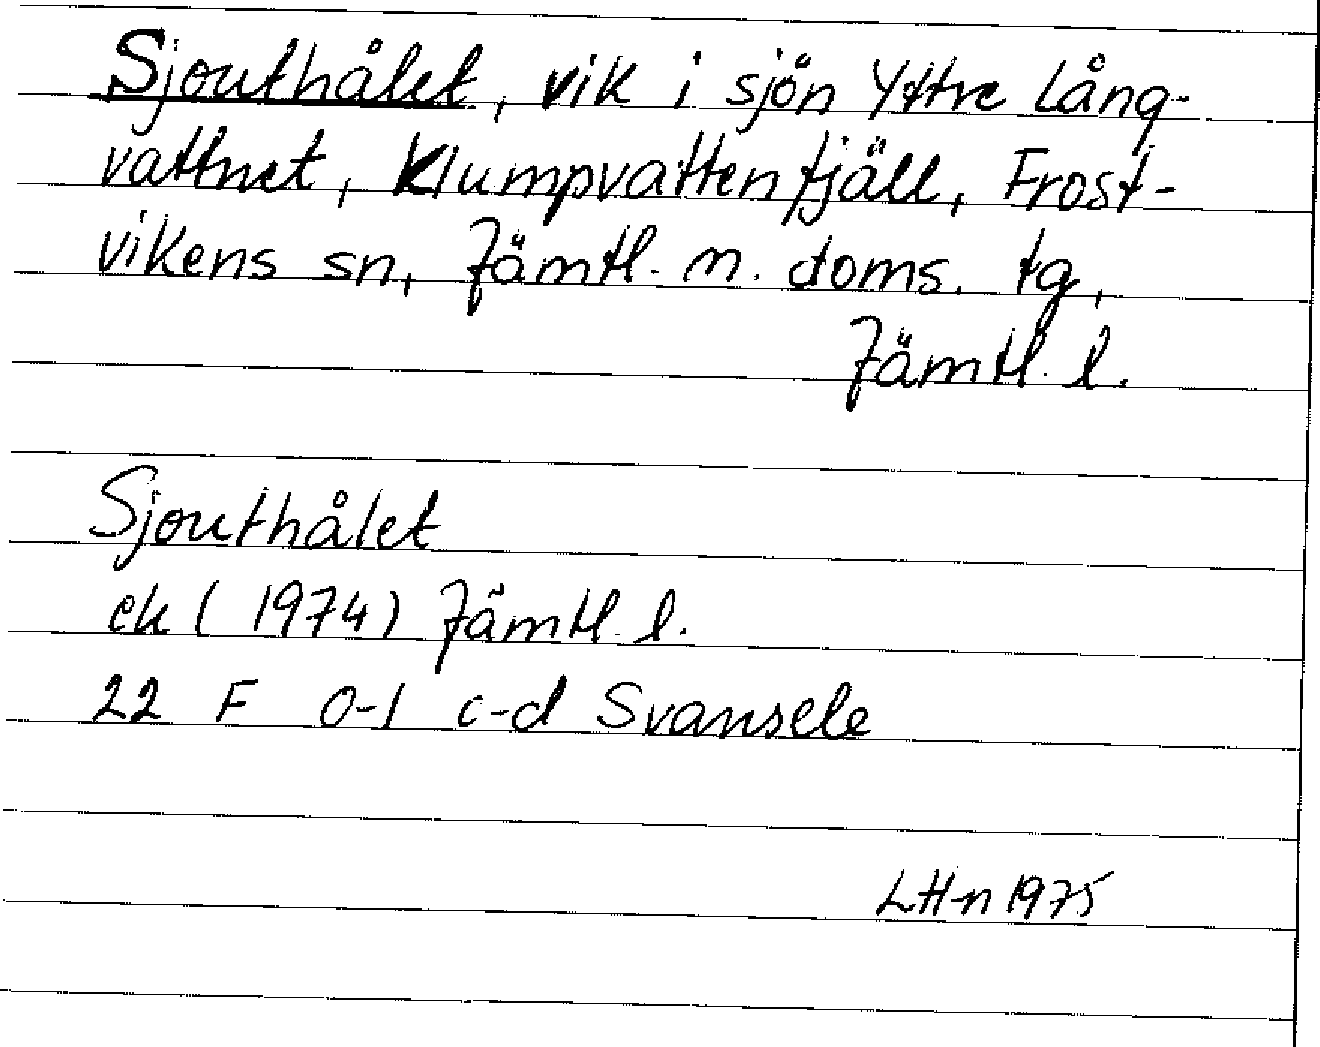 Sjouthålet, vik i sjön Yttre Lång-
vattnet, Klumpvattenfjäll, Frost-
vikens sn, Jämtl. n. doms. tg,
Jämtl. l.
Sjouthålet
ek (1974) Jämtl. l.
22 F 0-1 c-d Svansele
LH-n 1975